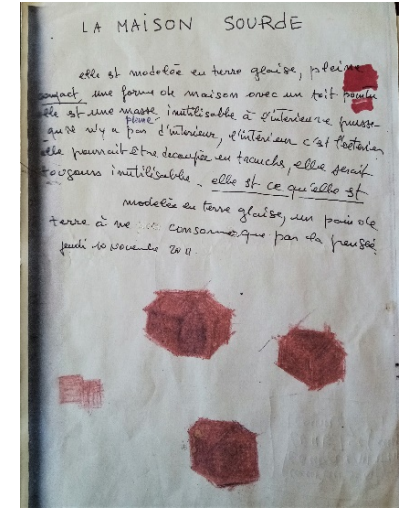 LA MAISON SOURDE
elle est modelée en terre glaise, pleine
compact, une forme de maison avec un toit pointu
elle est une masse inutilisable à l'intérieur puisse-
pleine
qu'il n'y a pas d'intérieur, l'intérieur c'est l'extérieur
elle pourrait être découpée en tranche, elle serait
toujours inutilisable. elle est ce qu'elle est
modelée en terre glaise, un pain de
terre à ne consommer que par la pensée.
jeudi 10 novembre 2011